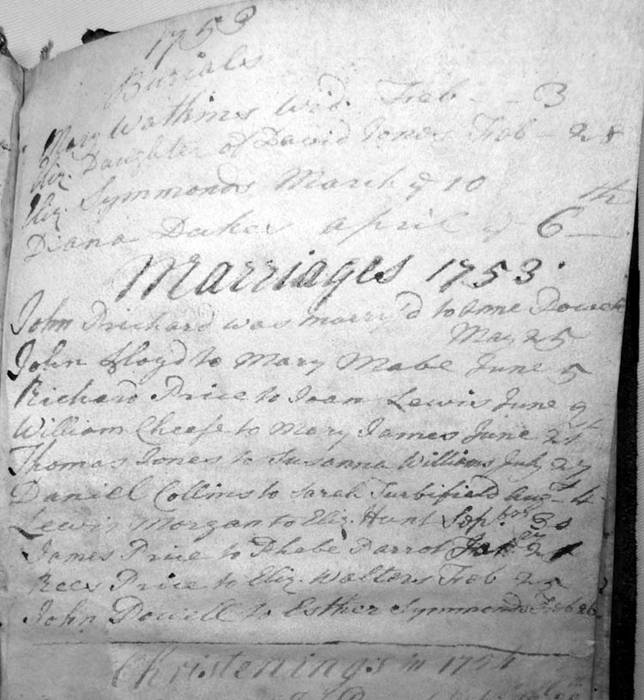 1753
Burials
Mary Watkins Wid. Feb - - 3
Eliz. Daughter of David Jones Feb - 28
Eliz. Symmonds March ye 10
Diana April ye 6th
Marriages 1753.
John Prichard was marry'd to Ame
May 25
John Lloyd to Mary Mabe June 5
Richard Price to Joan Lewis June 9
William Cheese to Mary James June 21
Thomas Jones to Susanna Williams July 27
Daniel Collins to Sarah Turbifield Aug 4
Lewis Morgan to Eliz. Hunt 30
James Price to Phebe Parrot
Rees Price to Eliz. Walters Feb 25
John Dowill to Esther Symmonds Feb 26
Christenings in 1754